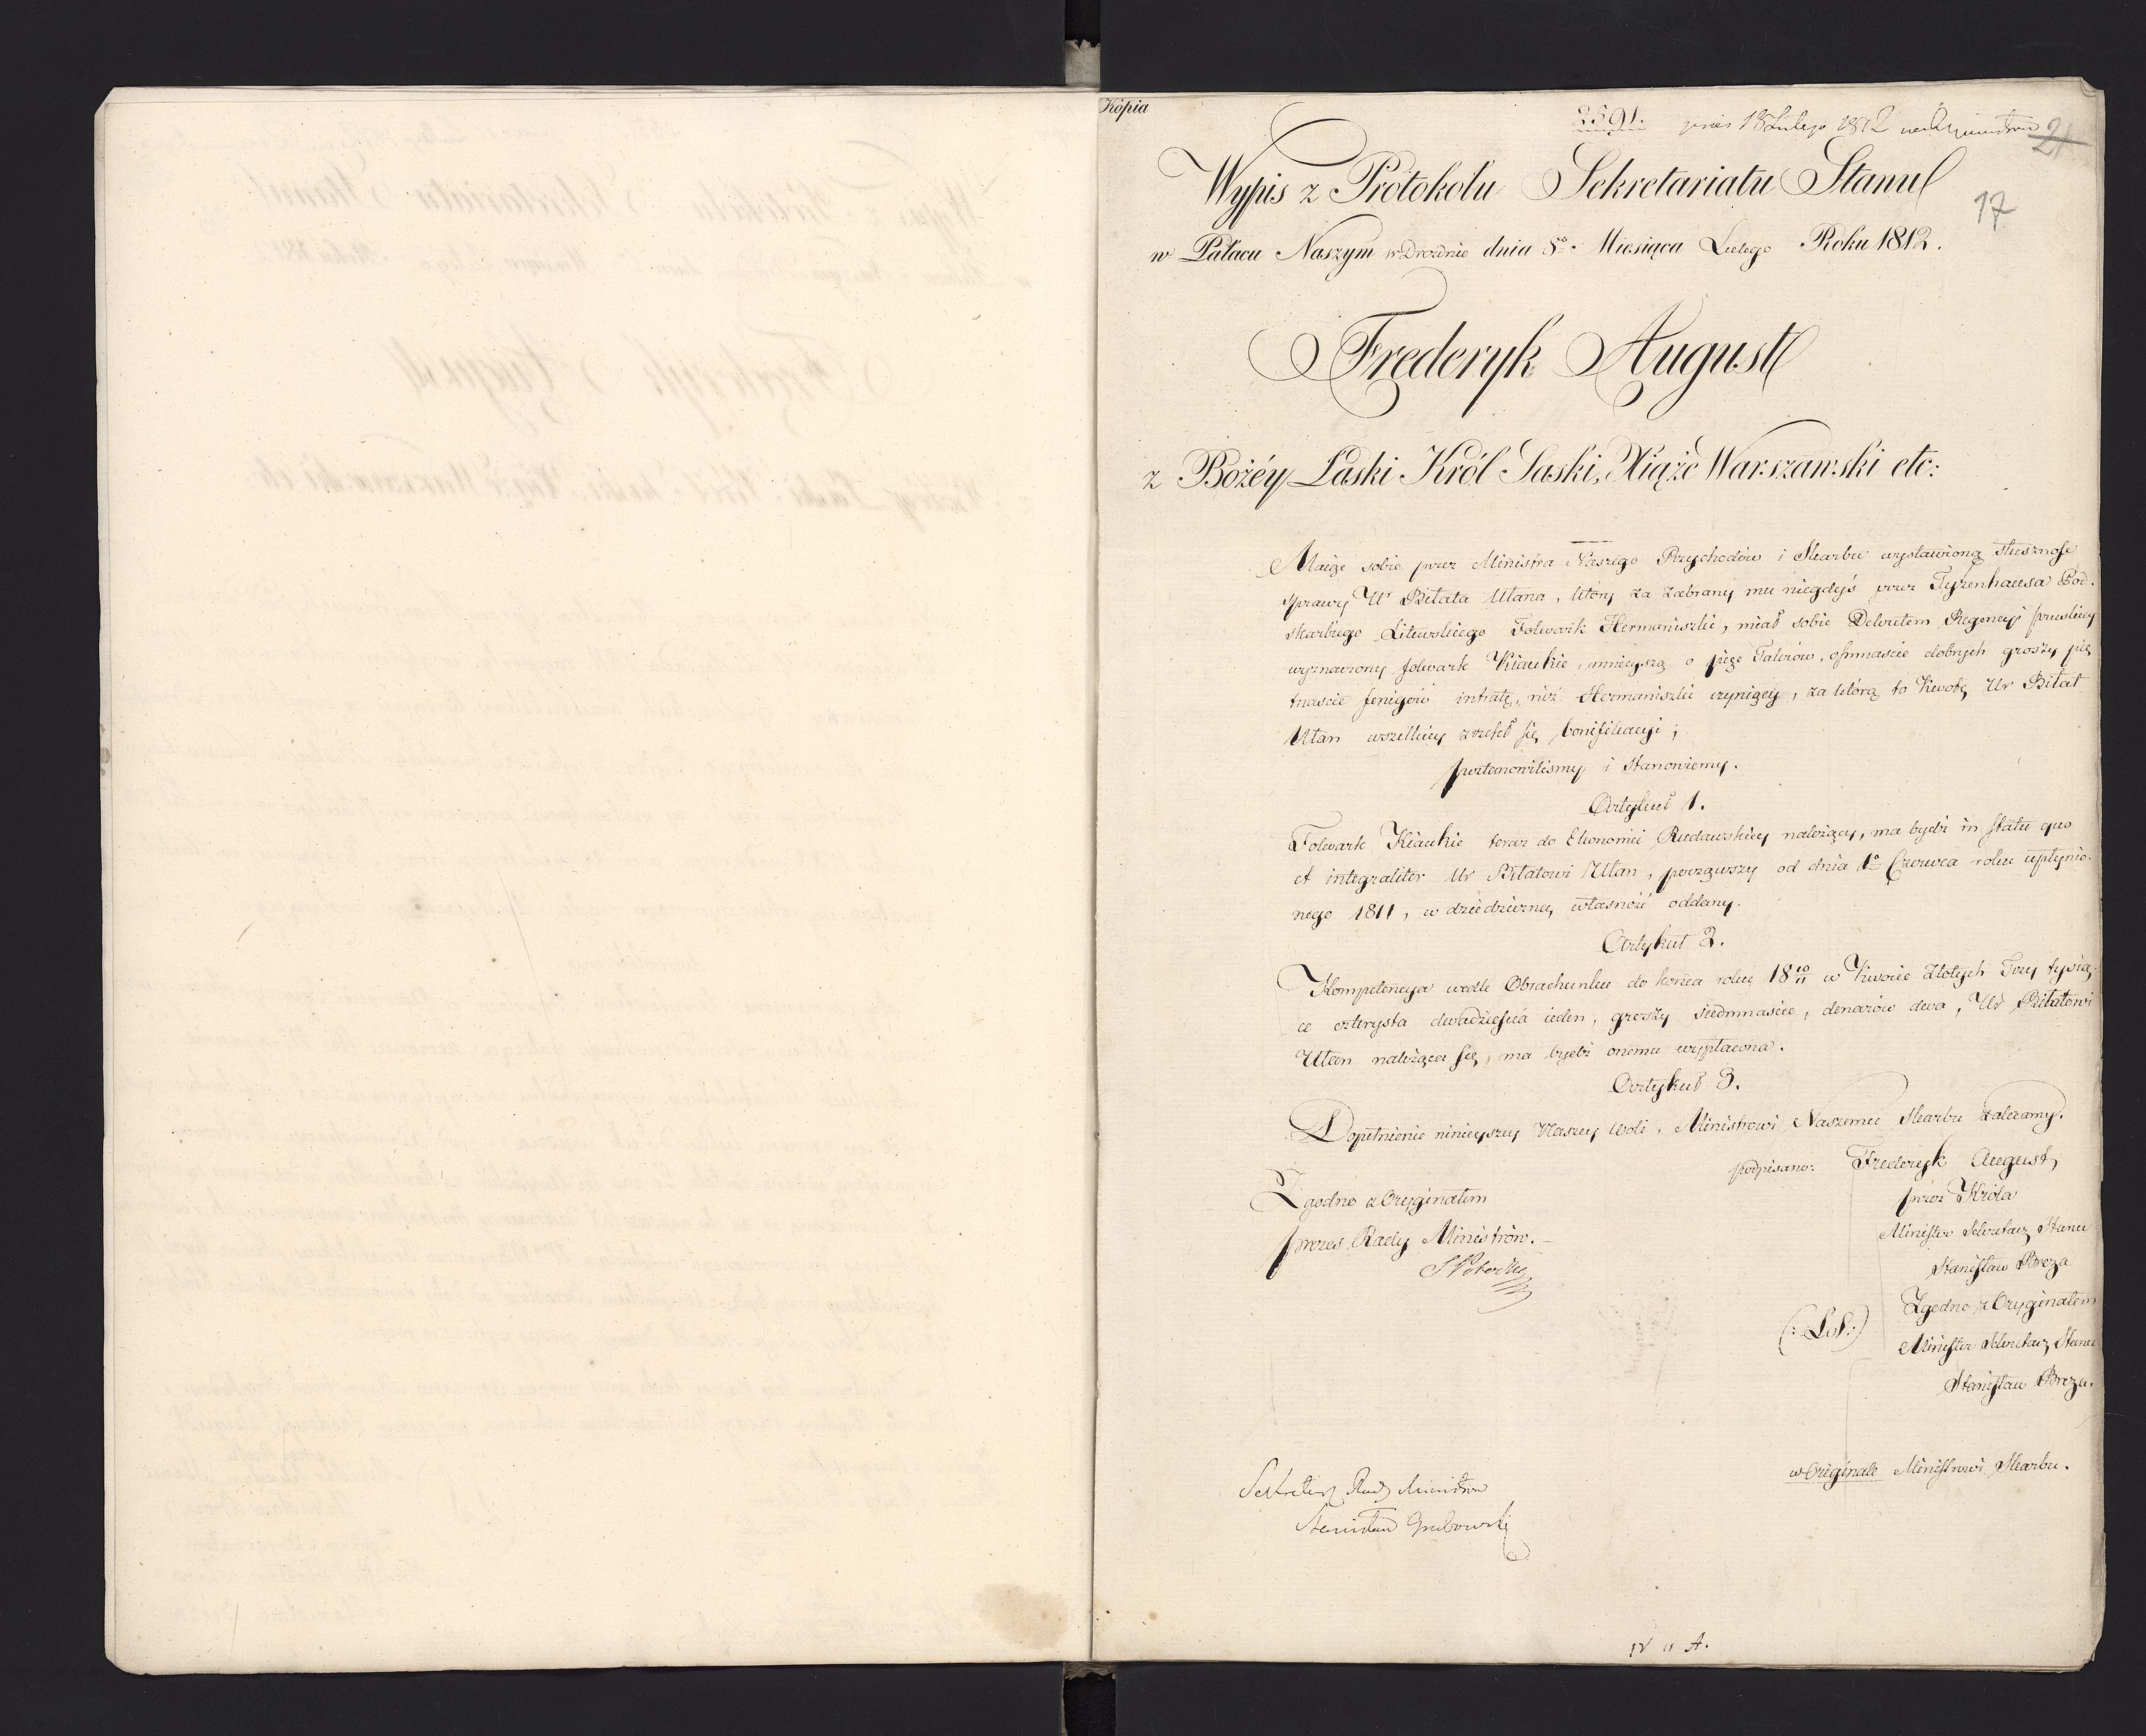 Kopia
2591.
18 Lutego 1812
21
17
Wypis z Protokołu Sekretariatu Stanu
w Pałacu Naszym w Dreznie dnia 8º. Miesiąca Lutego Roku 1812.
Frederyk August
z Bożéy Łaski Król Saski, Xiąże Warszawski etc:
Maiąc sobie przez Ministra Naszego Przychodów i Skarbu wystawioną słuszność
sprawy Ur Bitata Ułana, który za zabrany mu niegdyś przez Tyzenhauza Pod-
skarbiego Litewskiego Folwark Hermaniszki, miał sobie Dekretem Regencyi pruskiey
wyznaczony folwark Kiaukie, mnieyszą o pięć Talerów, ośmnaście dobrych groszy pię
tnaście fenigów intratę, niż Hermaniszki czyniący, za którą to kwotę Ur Bitat
Ułan wszelkiey zrzekł się bonifikacyi;
postanowiliśmy i stanowiemy.
Artykuł 1.
Folwark Kiaukie teraz do Ekonomii Rudawskiey należący, ma bydź in statu quo
et integraliter Ur Bitatowi Ułan, począwszy od dnia 1º Czerwca roku upłynio-
nego 1811, w dziedziczną własność oddany.
Artykuł 2.
Kompetencya wedle Obrachunku do końca roku 18 10/11 w kwocie Złotych Trzy tysią-
ce czterysta dwadzieścia ieden, groszy siedmnaście, denarów dwa, Ur Bitatowi
Ułan należąca się, ma bydź onemu wypłacona.
Artykuł 3.
Dopełnienie ninieyszey Naszey woli, Ministrowi Naszemu Skarbu zalecamy.
podpisano: Frederyk August,
przez Króla
Minister Sekretarz Stanu
Stanisław Breza
Zgodno z Oryginałem
prezes Rady Ministrów.
S Potocki
(: L.S.:)
Zgodno z Oryginałem
Minister Sekretarz Stanu
Stanisław Breza.
w Originale Ministrowi Skarbu.
Sekretarz Rady Ministrów
Stanisław Grabowski